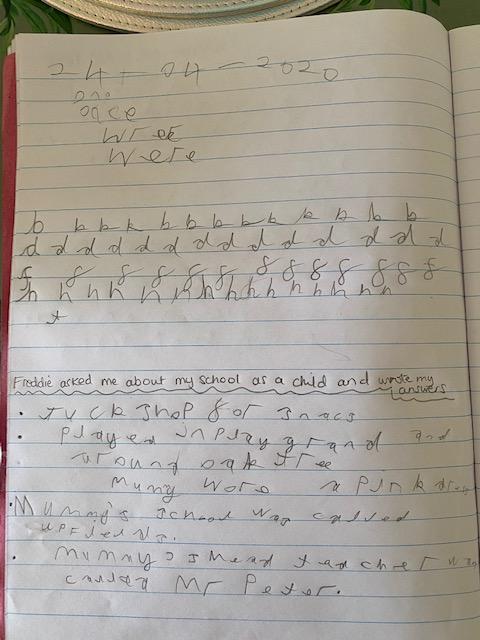 24-04-2020
one
oqce
wree
were
b b b k b b b b b b b b b
d d d d d d d d d d d d d d
f f f f f f f f f f f f
h h h h h h h h h h h h h h h
t
Freddie asked me about my school as a child and wrote my
answers
• tuck shop for snacs
• played in play grand and
around oak tree
mumy wore a pink dress
• Mummy's school was called
upfields.
• mummy's head teacher was
called Mr Peter.